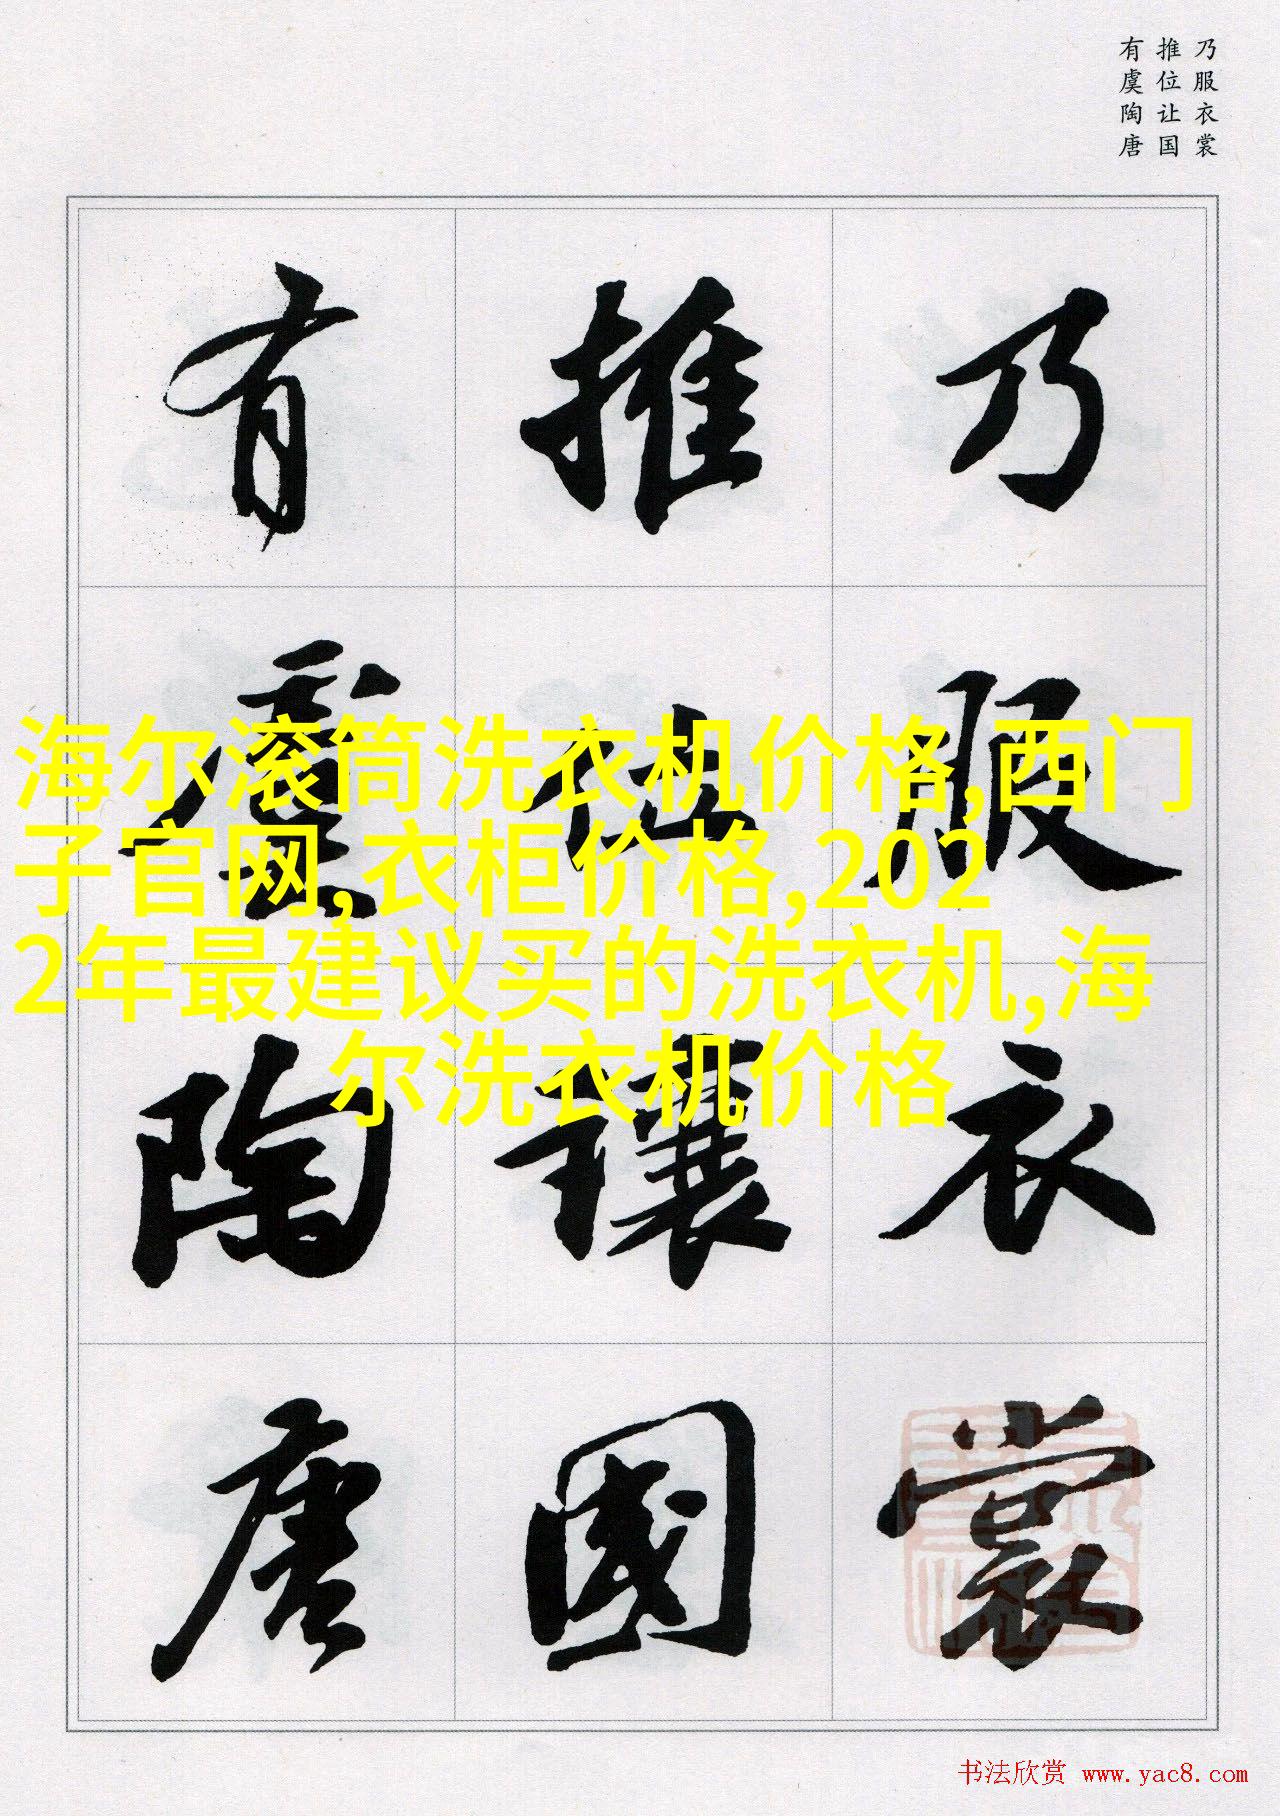 乃服衣裳
推位让国
有虞陶唐
乃服衣裳
推位讓國
有虞陶唐
海尔滚筒洗衣机价格,西门
子官网,衣柜价格,202
2年最建议买的洗衣机,海
尔洗衣机价格
书法欣赏 www.yac8.com